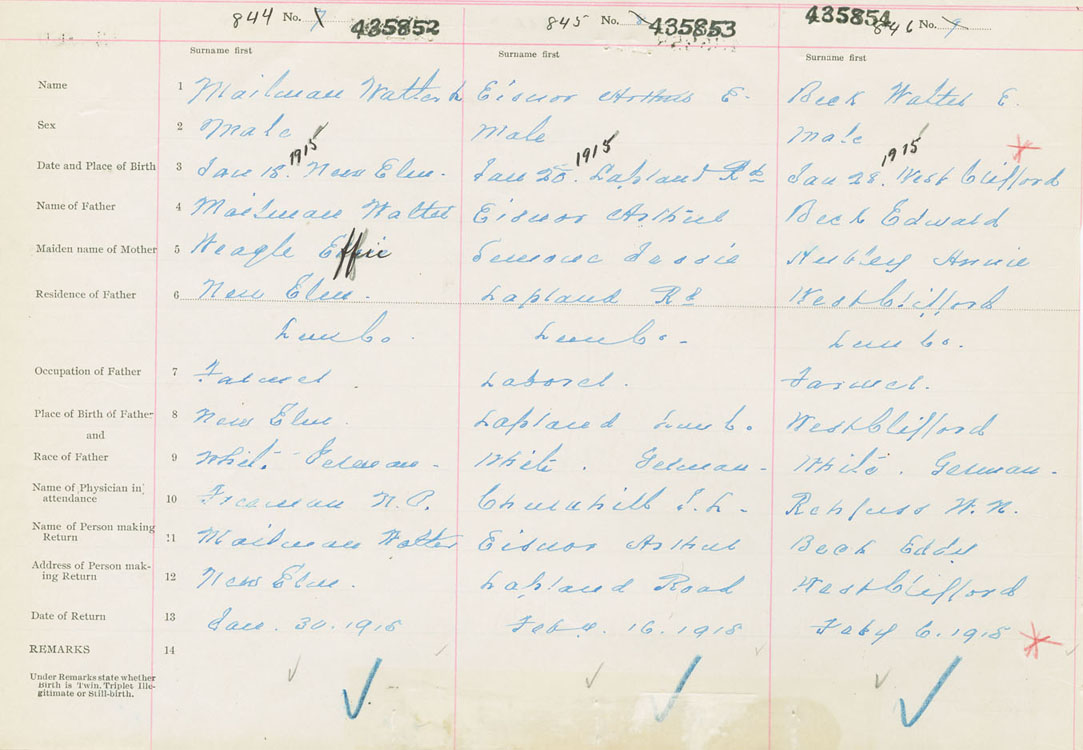 844 No. 7 435852 845 No. 8 435853 435854 846 No. 9
Surname first Surname first Surname first
Name 1 Mailman Walter L Eisnor Arthur E. Beck Walter E.
Sex 2 Male Male Male
1915 1915 1915
Date and Place of Birth 3 Jan 18. New Elm. Jan 28. Lapland Rd Jan 28. West Clifford
Name of Father 4 Mailman Walter Eisnor Arthur Beck Edward
Maiden name of Mother 5 Weagle Effie Jessie Annie
Residence of Father 6 New Elm. Lapland Rd West Clifford
Lun Co. Lun Co. Lun Co.
Occupation of Father 7 Farmer. Laborer. Farmer.
Place of Birth of Father 8 New Elm. Lapland Lun Co. West Clifford
and
Race of Father 9 White. German. White. German. White. German.
Name of Physician in
attendance 10 Freeman N.P. Churchill S.L. Rehfuss W.N.
Name of Person making
Return 11 Mailman Walter Eisnor Arthur Beck Eddy
Address of Person mak-
ing Return 12 New Elm. Lapland Road West Clifford
Date of Return 13 Jan. 30. 1915 Feby. 16. 1915 Feby 6. 1915
REMARKS 14
Under Remarks state whether
Birth is Twin, Triplet Ille-
gitimate or Still-birth.